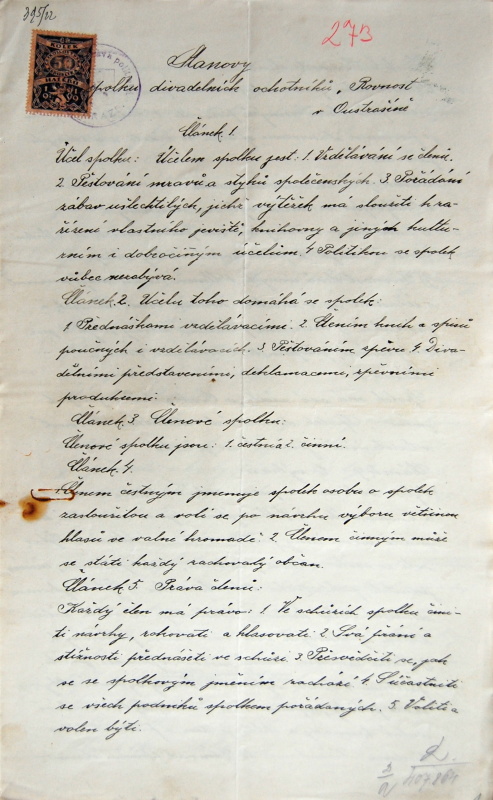 395/22
273
Stanovy
spolku divadelních ochotníků „Rovnost"
v Oustrašíně
Článek 1.
Účel spolku: Účelem spolku jest: 1. Vzdělávání se členů.
2. Pěstování mravů a styků společenských. 3. Pořádání
zábav ušlechtilých, jichž výtěžek má sloužiti k za-
řízení vlastního jeviště, knihovny a jiným kultu-
rním i dobročiným účelům. 4 Politikou se spolek
vůbec nezabývá.
Článek 2. Účelu toho domáhá se spolek:
1 Přednáškami vzdělávacími. 2. Čtením knih a spisů
poučných i vzdělávacích. 3. Pěstováním zpěvu 4. Diva-
delními představeními, deklamacemi, zpěvními
produkcemi.
Článek 3. Členové spolku:
Členové spolku jsou: 1. čestní a 2. činní.
Článek 4.
1. Členem čestným jmenuje spolek osobu o spolek
zasloužilou a volí se po návrhu výboru většinou
hlasů ve valné hromadě: 2. Členem činným může
se státi každý zachovalý občan.
Článek 5. Práva členů:
Každý člen má právo: 1. Ve schůzích spolku čini-
ti návrhy, rokovati a hlasovati 2. Svá přání a
stížnosti přednášeti ve schůzi 3. Přesvědčiti se, jak
se se spolkovým jměním zachází 4. Súčastniti
se všech podniků spolkem pořádaných. 5. Voliti a
volen býti.